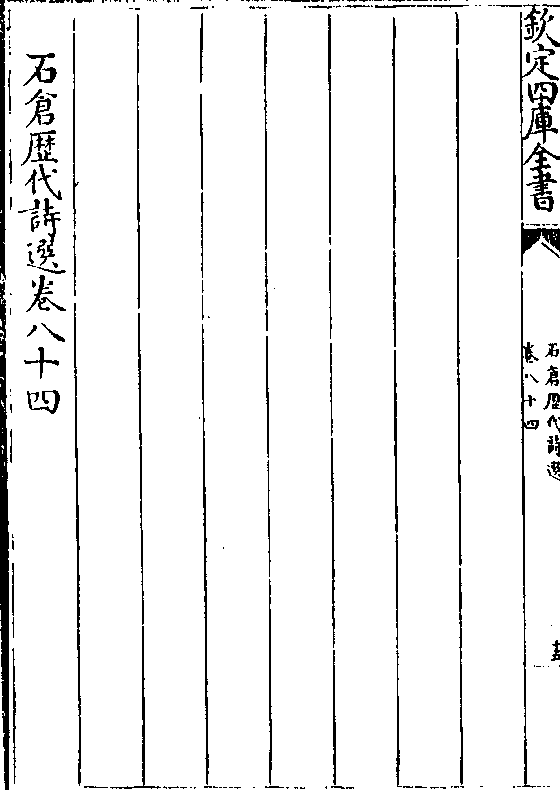 欽定四庫全書
石倉歷代詩選
卷八十四
石倉歷代詩選卷八十四